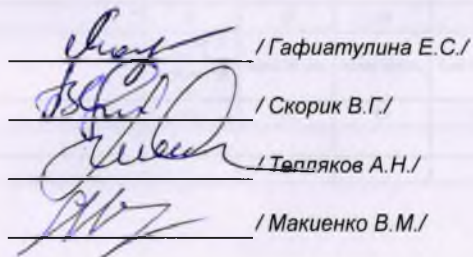 / Гафиатулина Е.С./
/ Скорик В.Г./
/ Тепляков А.Н./
/ Макиенко В.М./